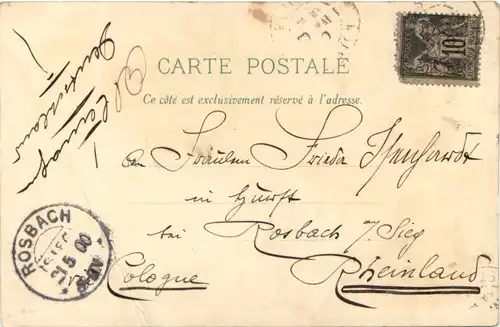 CARTE POSTALE
Ce côté est exclusivement réservé à l'adresse.
10
Allemagne
Deutschland
Fräulein Frieda
in Hurst
bei Rosbach a/Sieg
Rheinland
via Cologne
ROSBACH
5 00